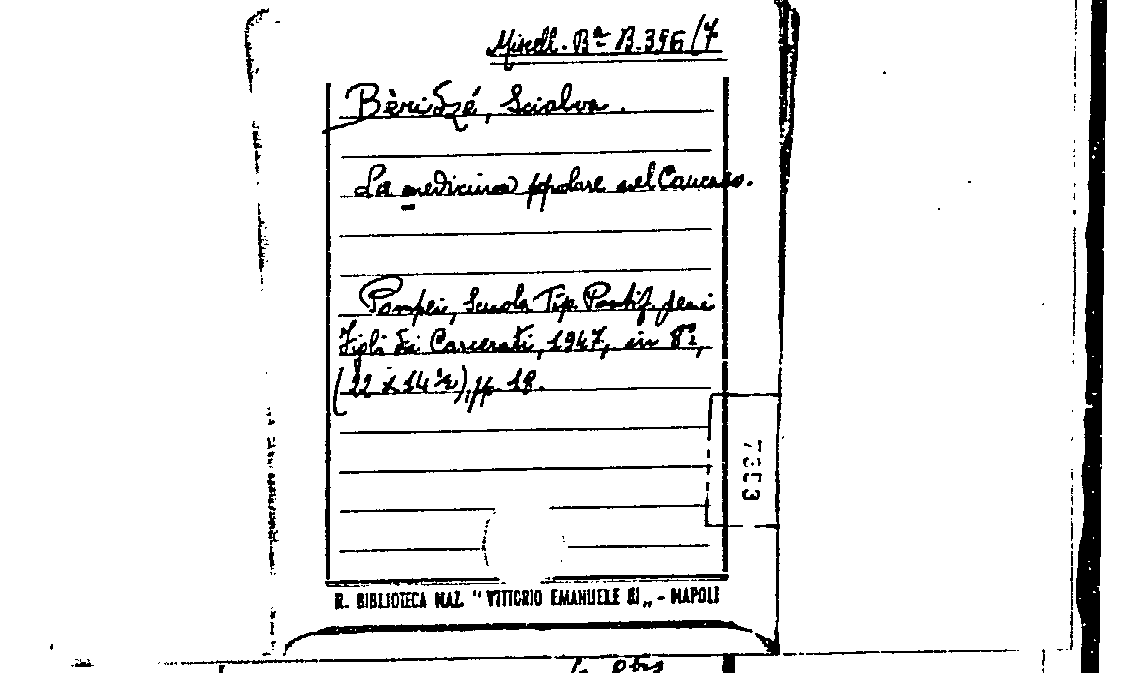 Miscell. Bª B.396/7
Bèridzé, Scialva.
La medicina popolare nel Caucaso.
Pompei, Scuola Tip. Pontif. pei
Figli dei Carcerati, 1947, in 8º,
(22 x 14 ½), pp. 18.
7303
R. BIBLIOTECA NAZ. "VITTORIO EMANUELE III„ - NAPOLI